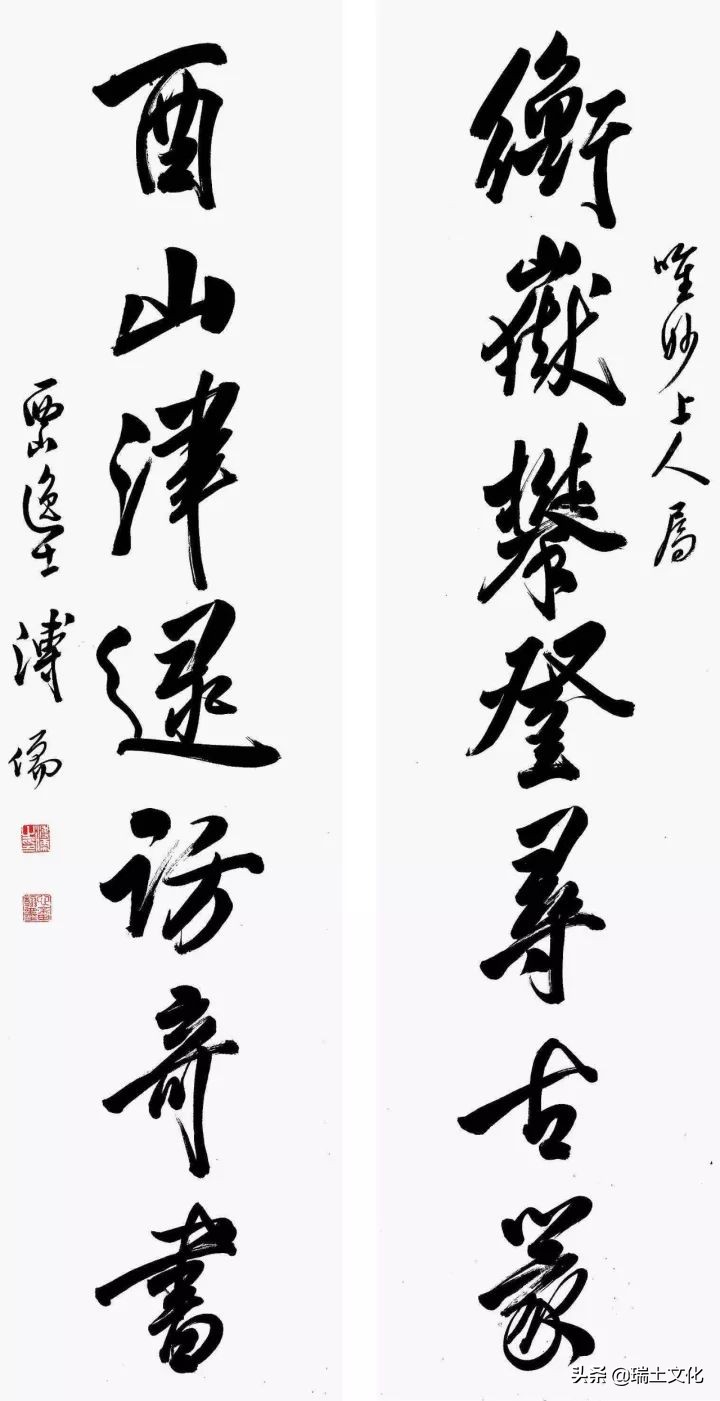 唯妙上人属
衡嶽攀登尋古篆
酉山津逮訪奇書
西山逸士 溥儒
头条 @瑞土文化